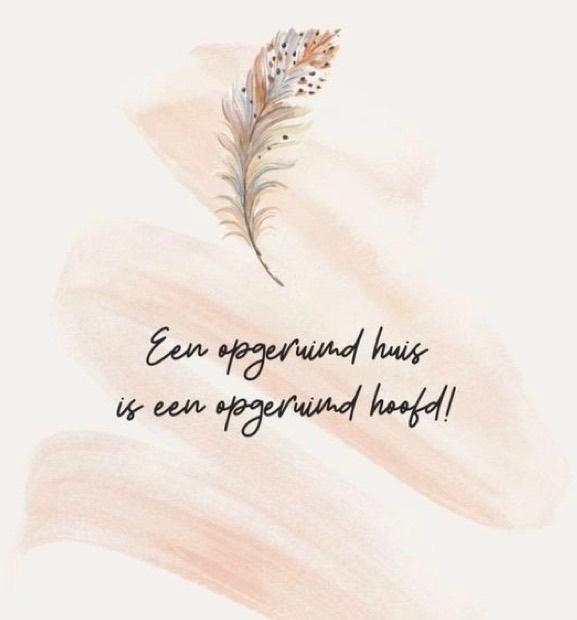 Een opgeruimd huis
is een opgeruimd hoofd!